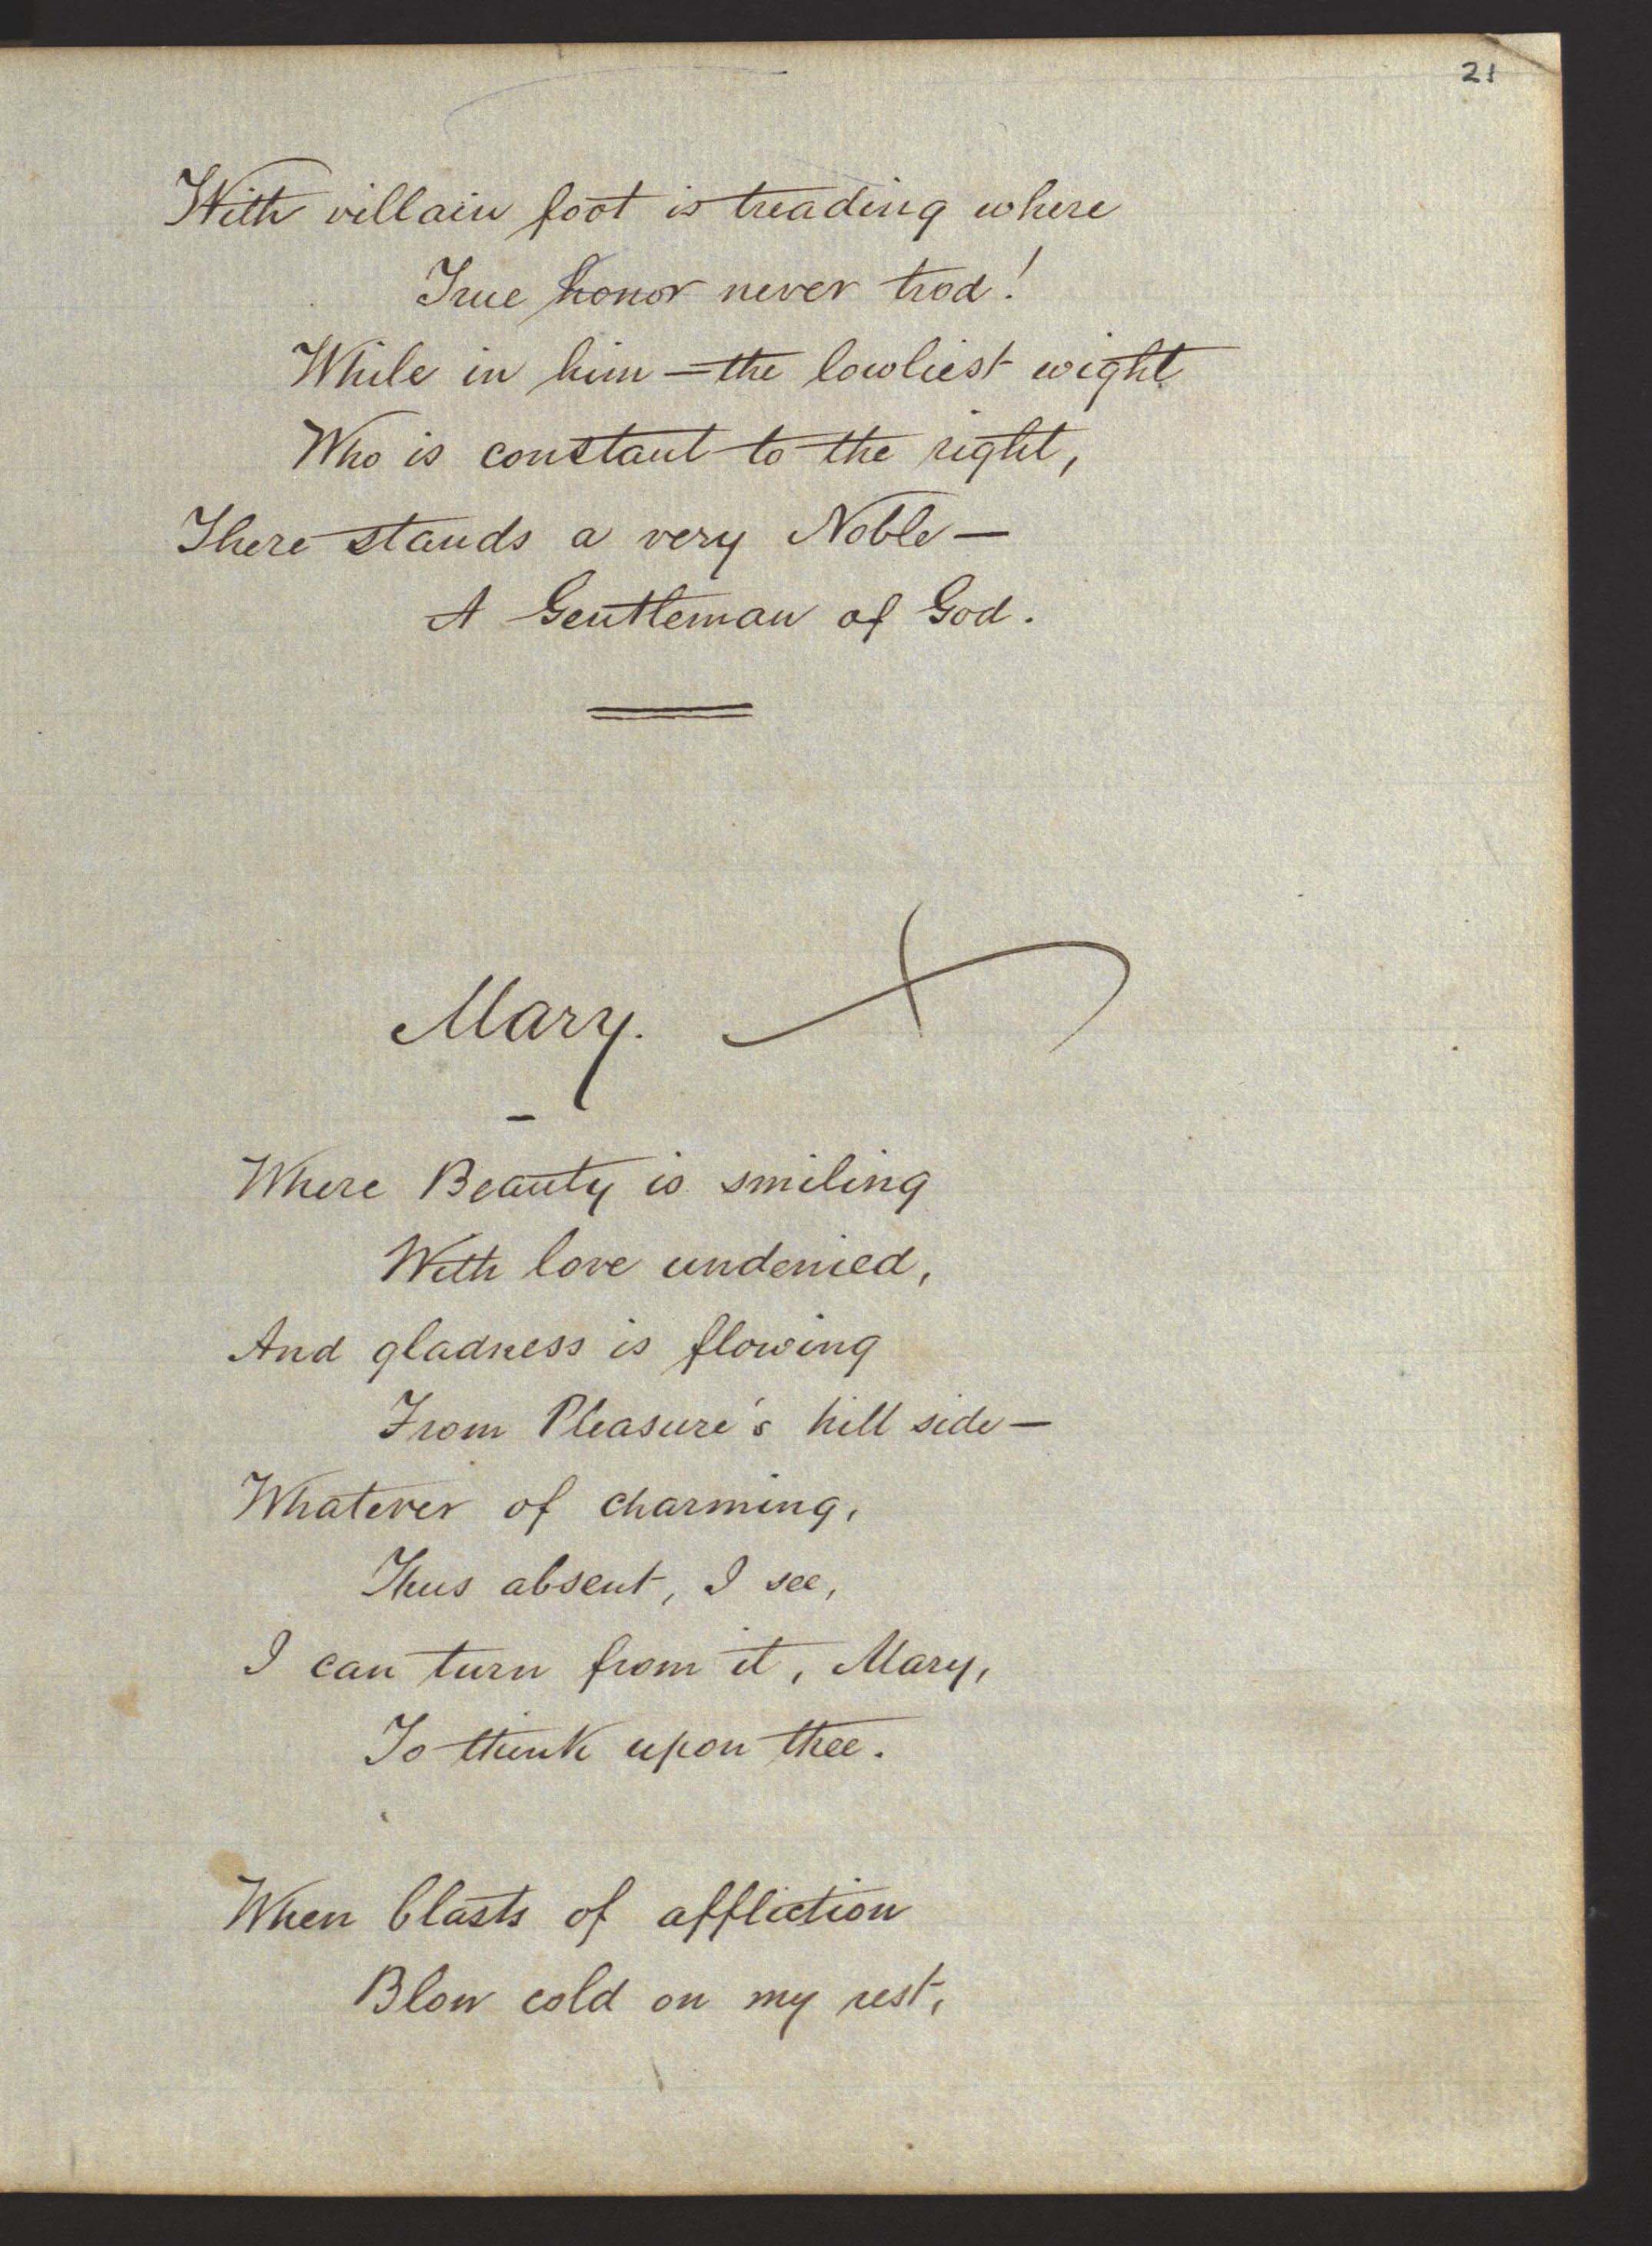 21
With villain foot is treading where
True honor never trod!
While in him — the lowliest wight
Who is constant to the right,
There stands a very Noble —
A Gentleman of God.
Mary.
Where Beauty is smiling
With love undenied,
And gladness is flowing
From Pleasure's hill side —
Whatever of charming,
Thus absent, I see,
I can turn from it, Mary,
To think upon thee.
When blasts of affliction
Blow cold on my rest,